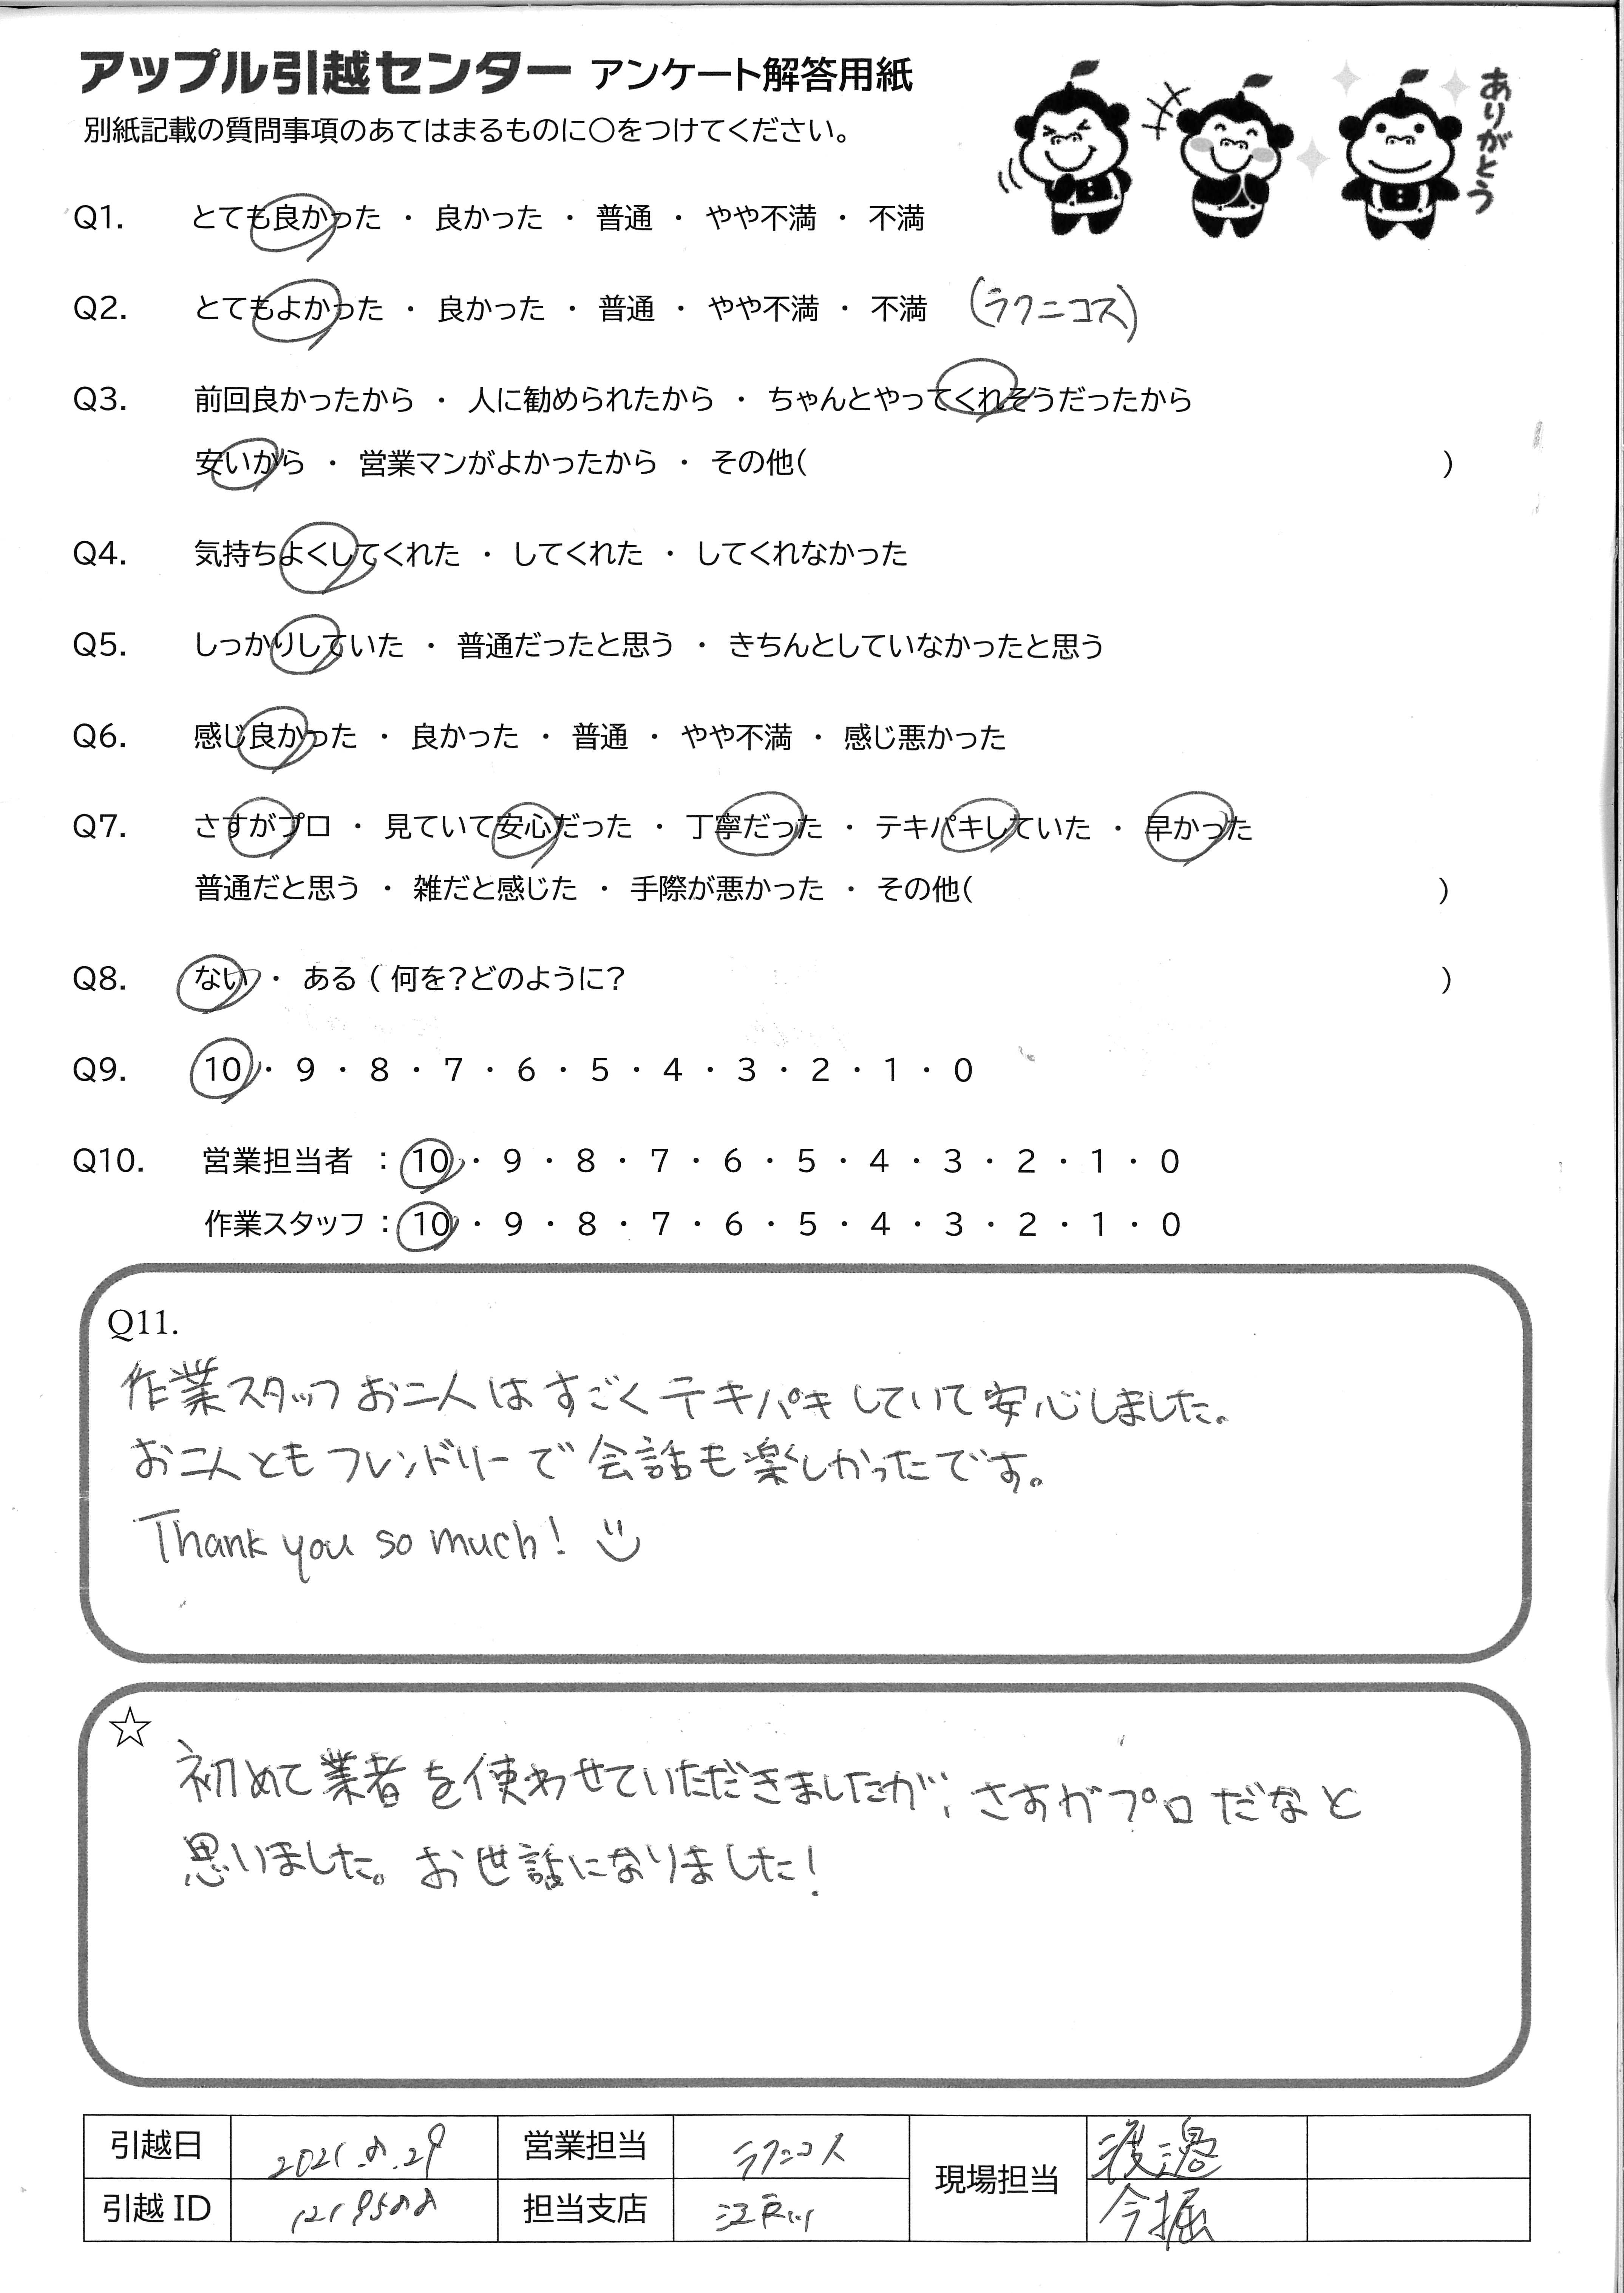 アップル引越センター アンケート解答用紙
ありがとう
別紙記載の質問事項のあてはまるものに〇をつけてください。
Q1. とても良かった ・ 良かった ・ 普通 ・ やや不満 ・ 不満
Q2. とてもよかった ・ 良かった ・ 普通 ・ やや不満 ・ 不満 (ラクニコス)
Q3. 前回良かったから ・ 人に勧められたから ・ ちゃんとやってくれそうだったから
安いから ・ 営業マンがよかったから ・ その他( )
Q4. 気持ちよくしてくれた ・ してくれた ・ してくれなかった
Q5. しっかりしていた ・ 普通だったと思う ・ きちんとしていなかったと思う
Q6. 感じ良かった ・ 良かった ・ 普通 ・ やや不満 ・ 感じ悪かった
Q7. さすがプロ ・ 見ていて安心だった ・ 丁寧だった ・ テキパキしていた ・ 早かった
普通だと思う ・ 雑だと感じた ・ 手際が悪かった ・ その他( )
Q8. ない ・ ある ( 何を?どのように? )
Q9. 10 ・ 9 ・ 8 ・ 7 ・ 6 ・ 5 ・ 4 ・ 3 ・ 2 ・ 1 ・ 0
Q10. 営業担当者 : 10 ・ 9 ・ 8 ・ 7 ・ 6 ・ 5 ・ 4 ・ 3 ・ 2 ・ 1 ・ 0
作業スタッフ : 10 ・ 9 ・ 8 ・ 7 ・ 6 ・ 5 ・ 4 ・ 3 ・ 2 ・ 1 ・ 0
Q11.
作業スタッフお二人はすごくテキパキしていて安心しました。
お二人ともフレンドリーで会話も楽しかったです。
Thank you so much!
☆
初めて業者を使わせていただきましたが、さすがプロだなと
思いました。お世話になりました!
引越日 2021.8.29 営業担当 ラクニコス 現場担当 渡邉
引越 ID 担当支店 江戸川 今堀